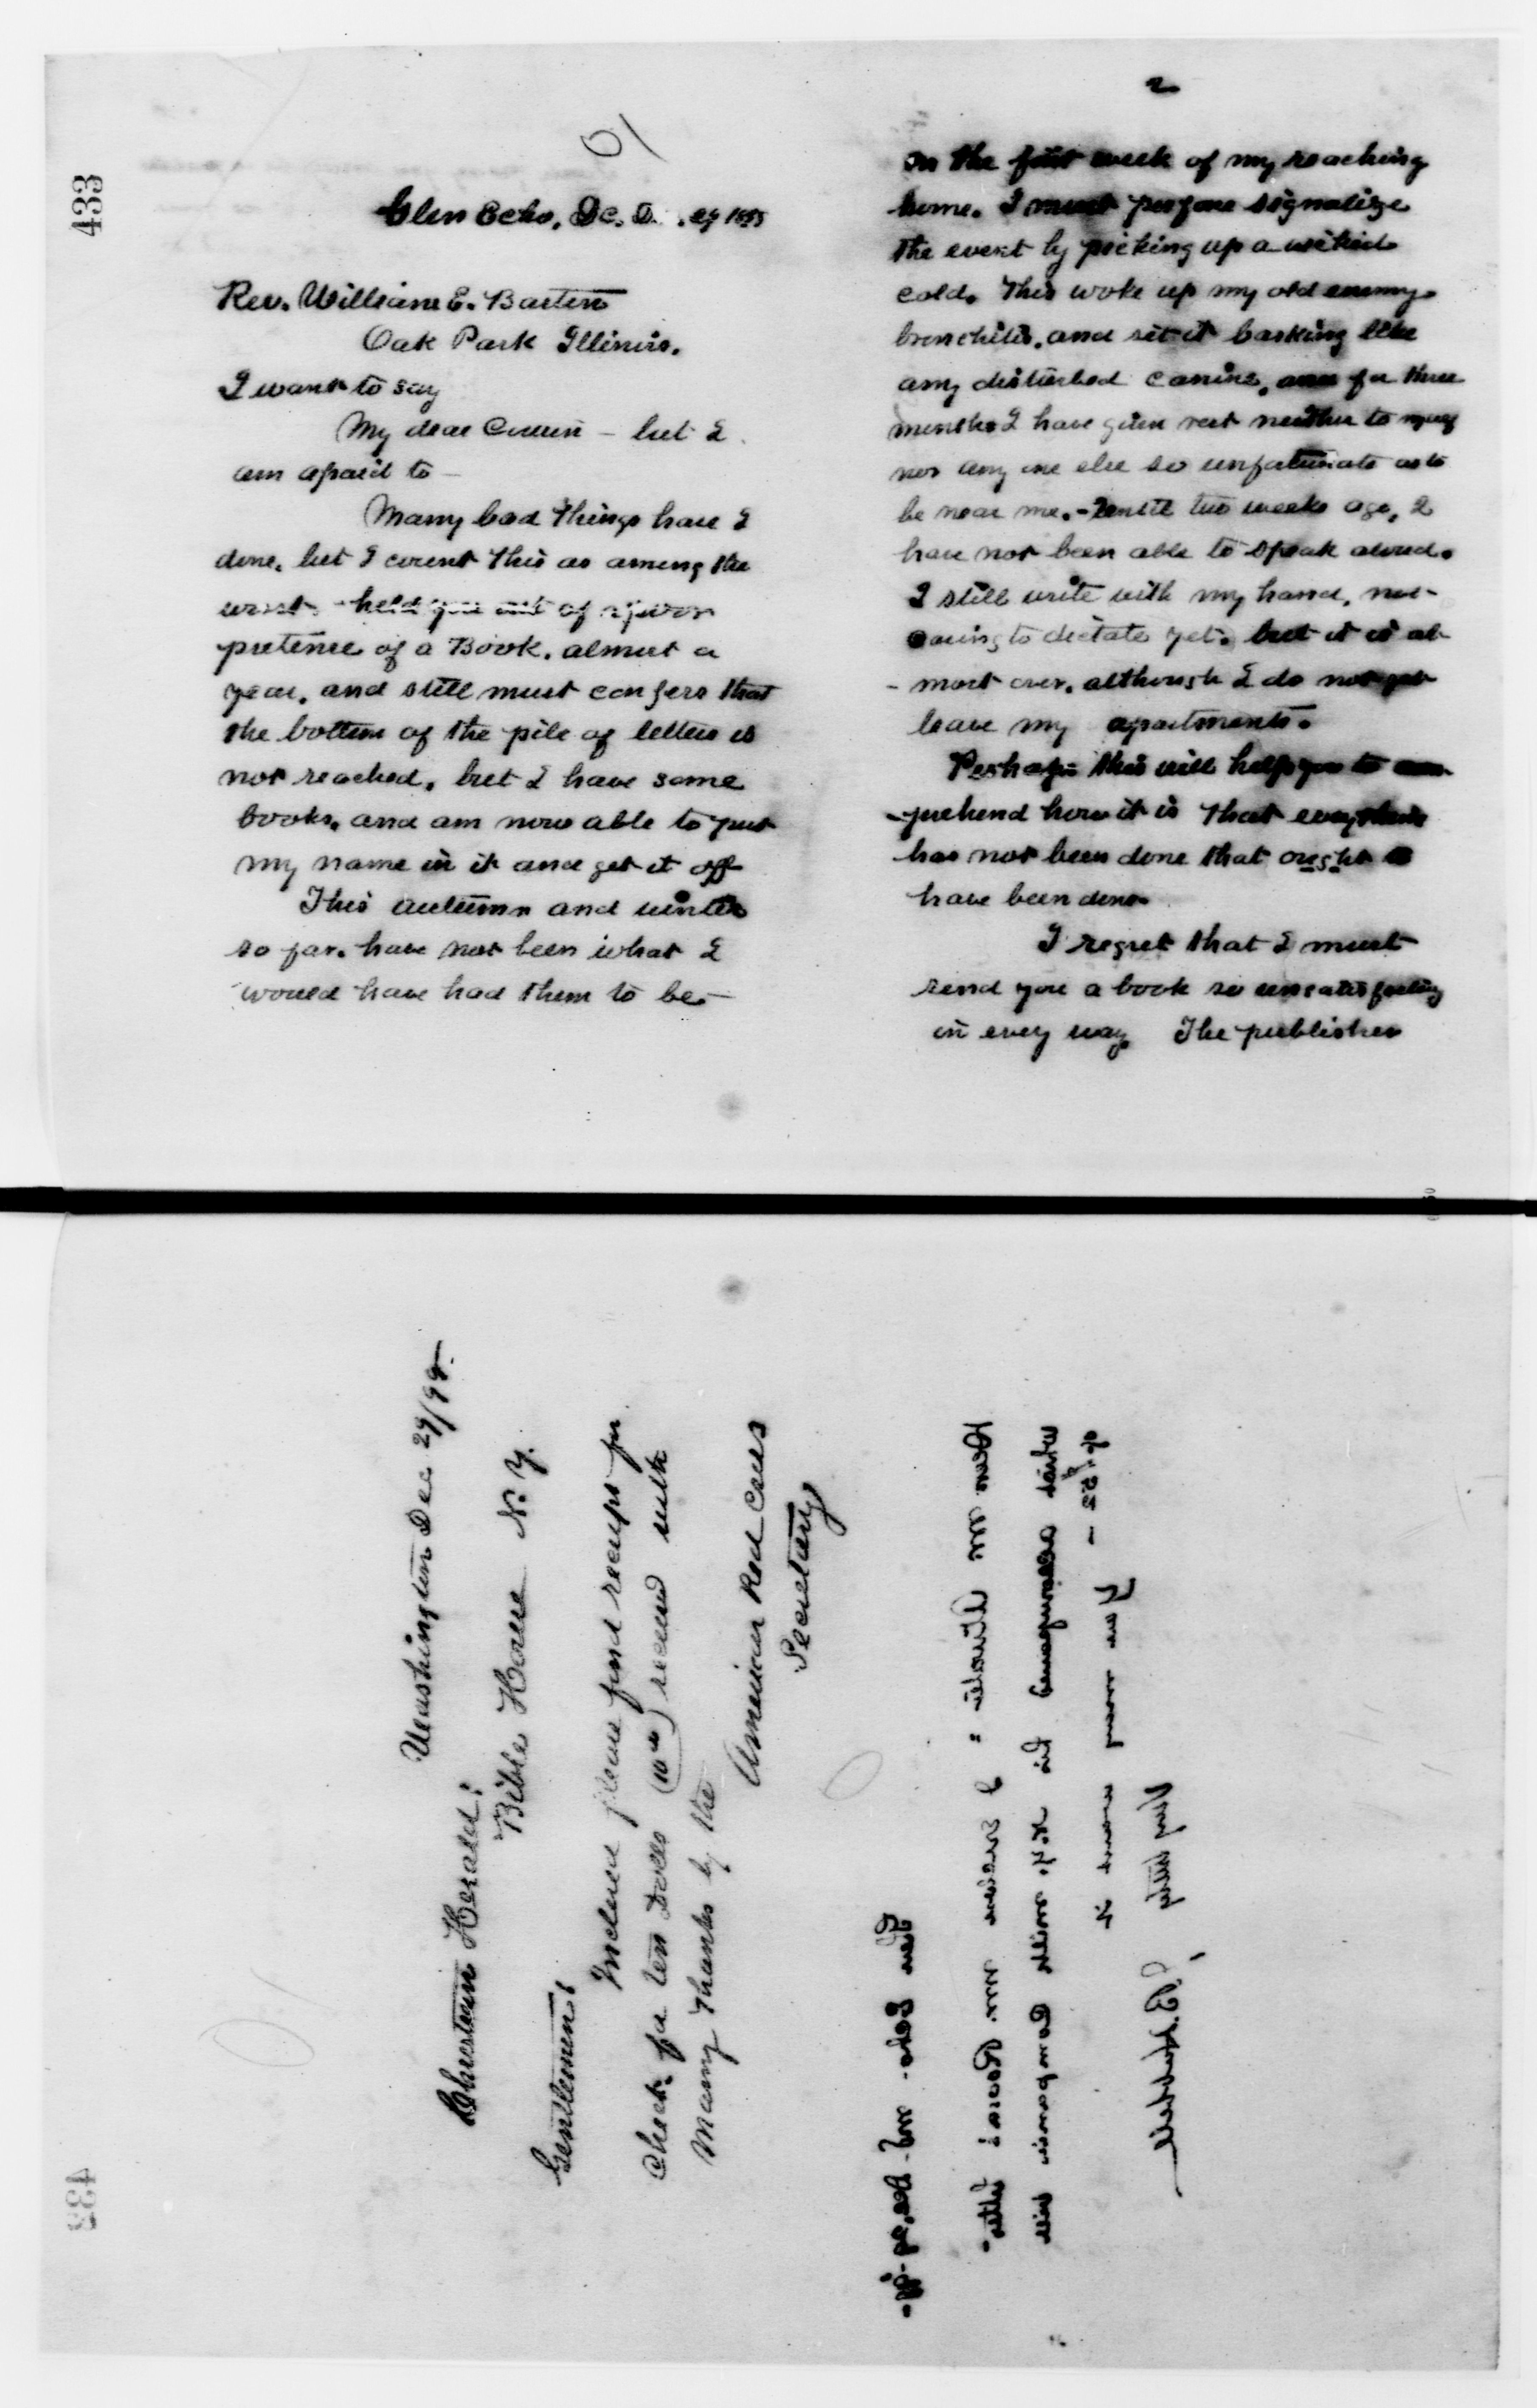 433
Glen Echo, Dec. 29 1899
Rev. William E. Barton
Oak Park Illinois.
I want to say
My dear Cousin – but I
am afraid to –
Many bad things have I
done, but I count this as among the
worst – held you out of a poor
pretense of a Book, almost a
year, and still must confess that
the bottom of the pile of letters is
not reached, but I have some
books, and am now able to put
my name in it and get it off
This autumn and winter
so far, have not been what I
would have had them to be –
2
in the first week of my reaching
home. I must signalize
the event by picking up a wicked
cold. This woke up my old enemy
bronchitis, and set it barking like
any disturbed canine, and for three
months I have given rest neither to myself
nor any one else so unfortunate as to
be near me. – Until two weeks ago, I
have not been able to speak aloud.
I still write with my hand, not
daring to dictate yet. but it is al-
- most over, although I do not yet
leave my apartments.
Perhaps this will help you to com-
-prehend how it is that everything
has not been done that ought to
have been done
I regret that I must
send you a book so unsatisfactory
in every way The publisher
Washington Dec 29/99.
Christian Herald:
Bible House N.Y.
Gentlemen:
Inclosed please find receipt for
Check for ten Dolls (10 00) received with
Many thanks by the
American Red Cross
Secretary
Glen Echo. Md. Dec. 29. 99 -
Dear Mr I enclose Mr. letter -
what accompanied his N.Y. with Companion bill
of $ - You may want it
Very truly
C. B. Hubbell
433